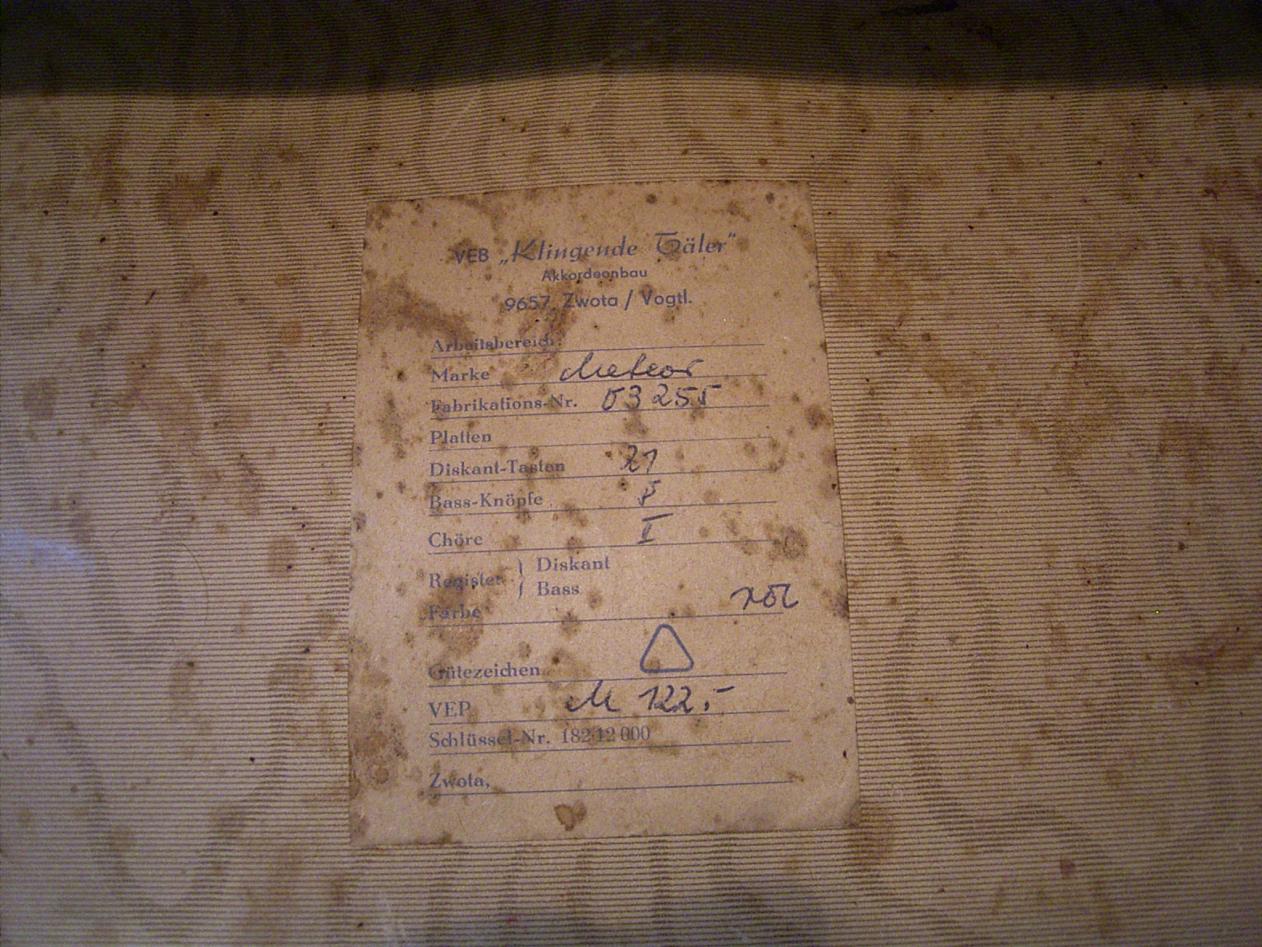 VEB „Klingende Täler"
Akkordeonbau
9657 Zwota / Vogtl.
Arbeitsbereich:
Marke Meteor
Fabrikations-Nr. 03255
Platten
Diskant-Tasten 21
Bass-Knöpfe 8
Chöre I
Register } Diskant
Bass
Farbe rot
Gütezeichen
VEP M 122.-
Schlüssel-Nr. 182 12 000
Zwota,